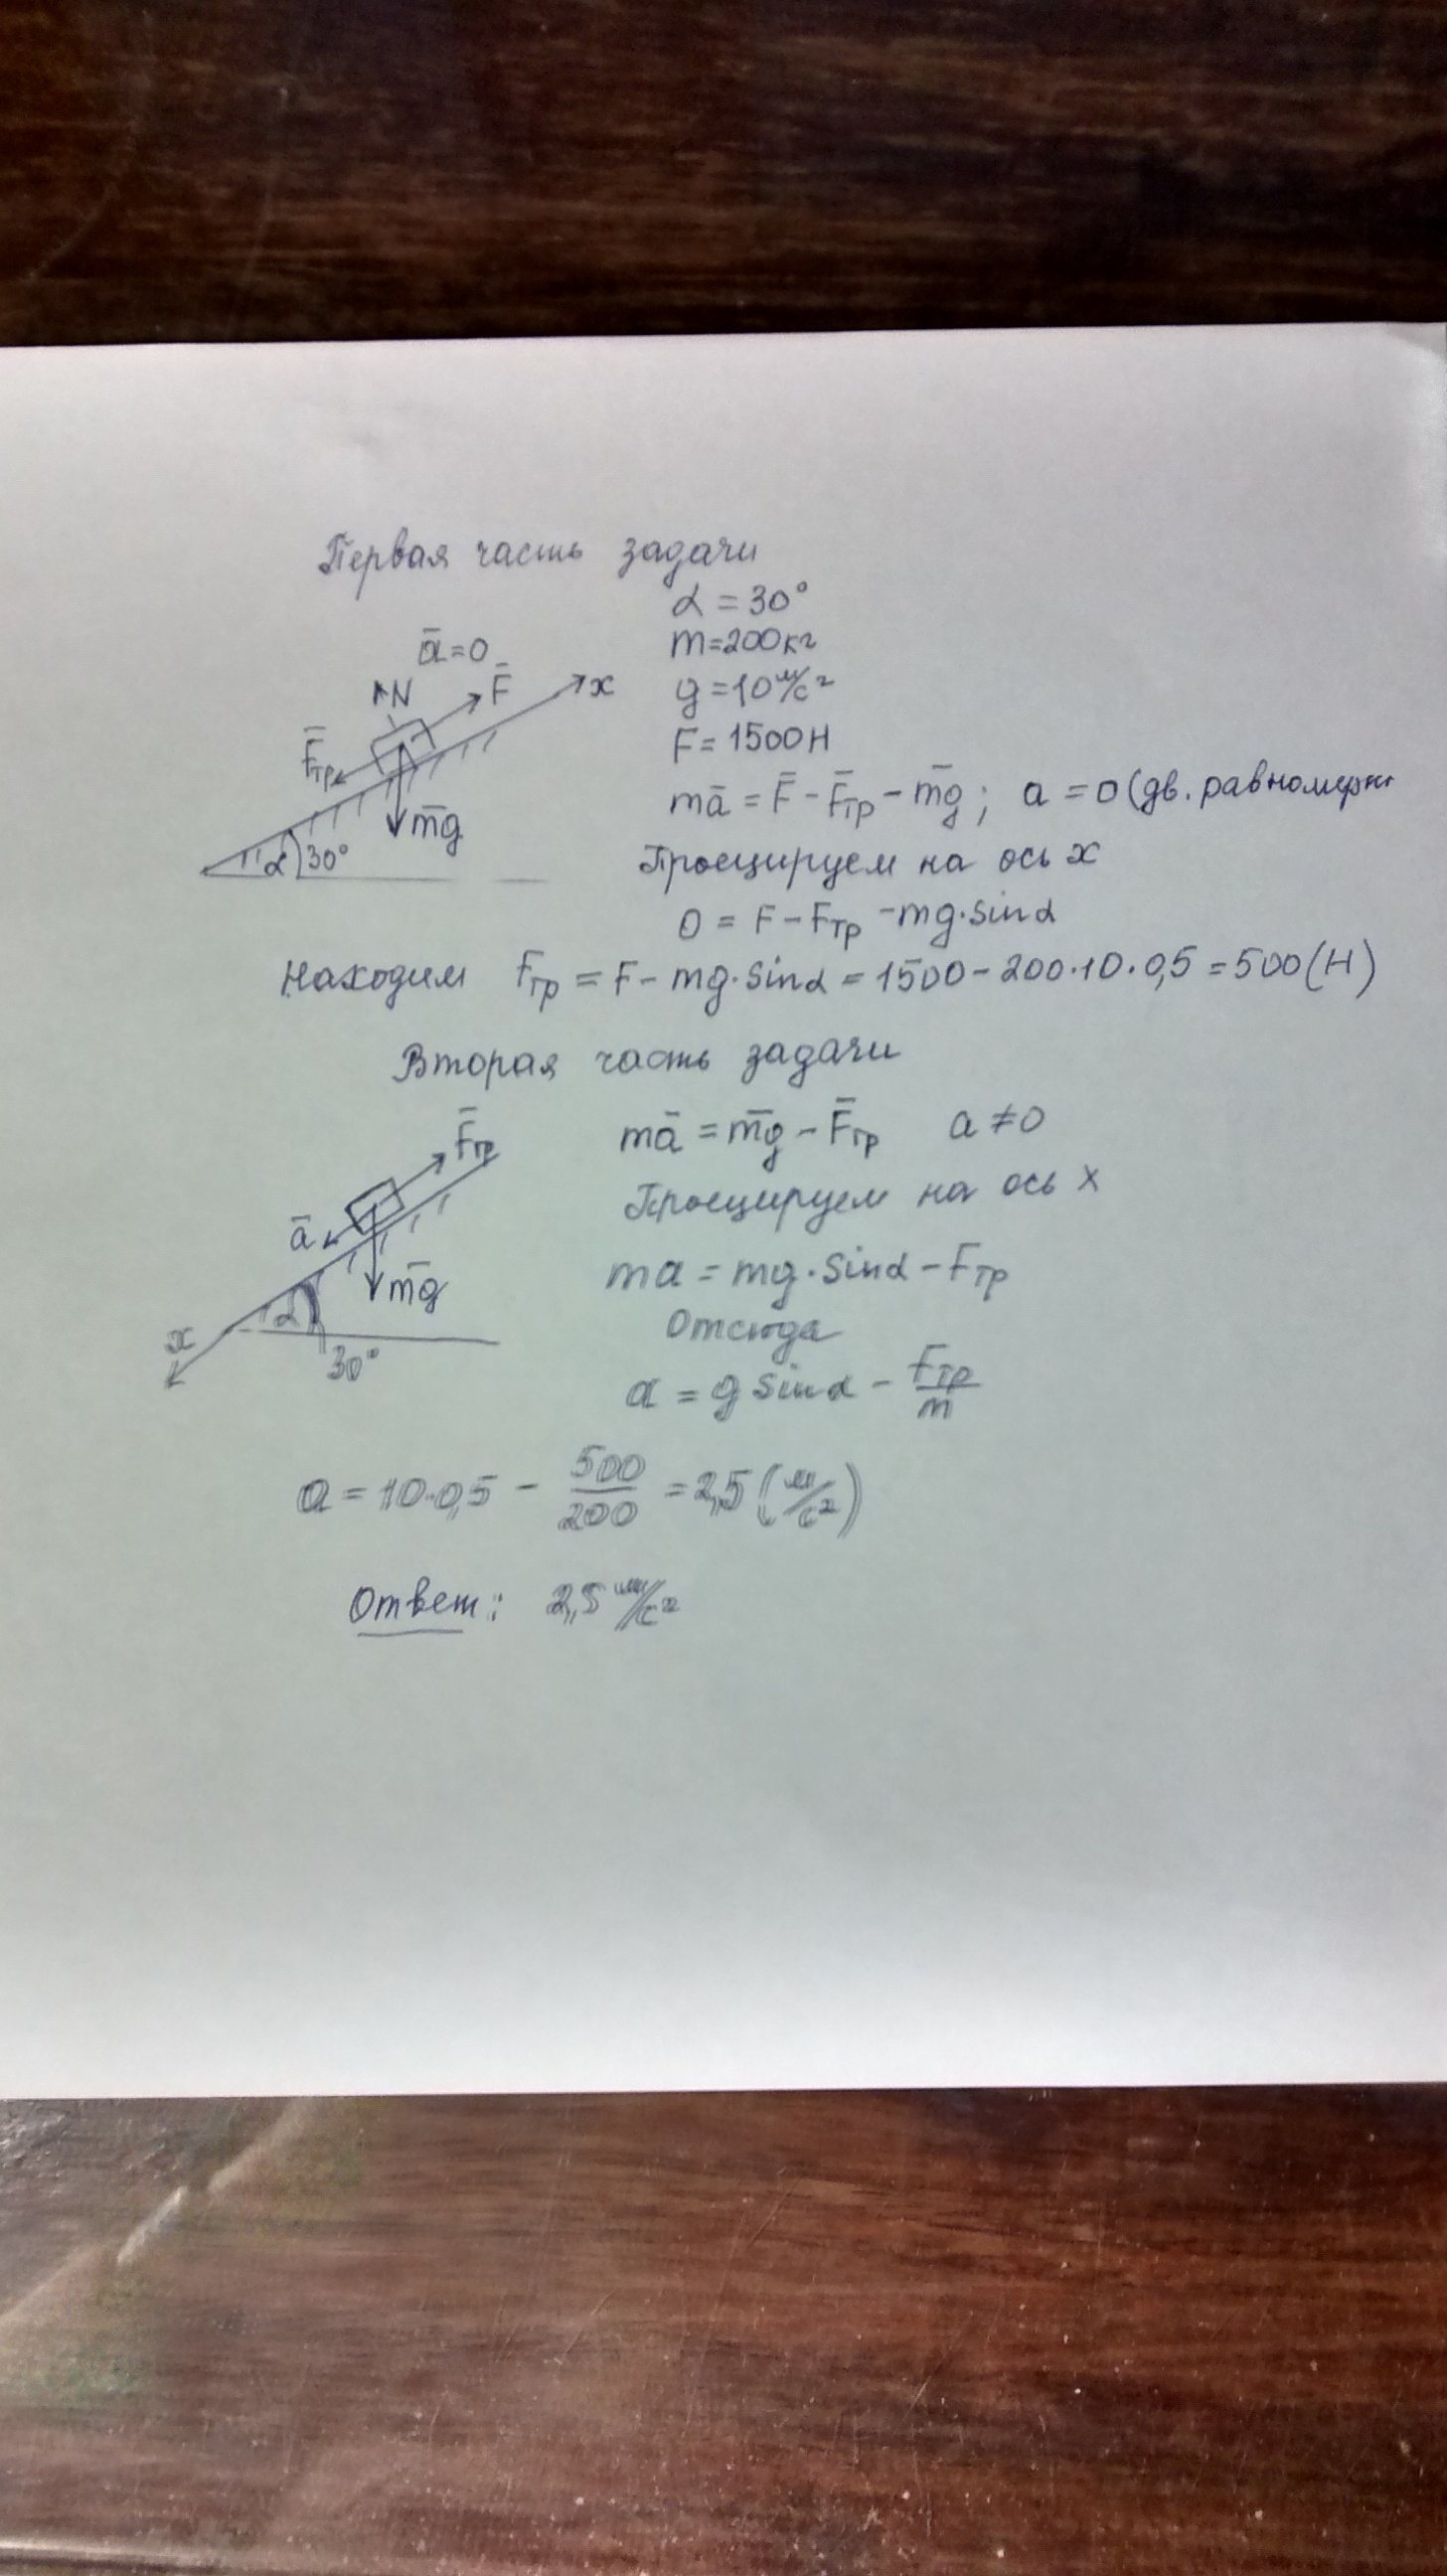 Первая часть задачи
α = 30°
m=200кг
g=10 м/с²
F= 1500Н
ā=0
N
F̄
x
F̄тр
m̄g
α 30°
mā = F̄ - F̄тр - m̄g ; a = 0 (дв. равномерн
Проецируем на ось x
0 = F - Fтр - mg·sinα
Находим Fтр = F - mg·sinα = 1500 - 200·10·0,5 = 500(Н)
Вторая часть задачи
F̄тр
ā
m̄g
α
x
30°
mā = m̄g - F̄тр a ≠ 0
Проецируем на ось x
ma = mg·sinα - Fтр
Отсюда
a = g sinα - Fтр/m
a = 10·0,5 - 500/200 = 2,5 (м/с²)
Ответ: 2,5 м/с²